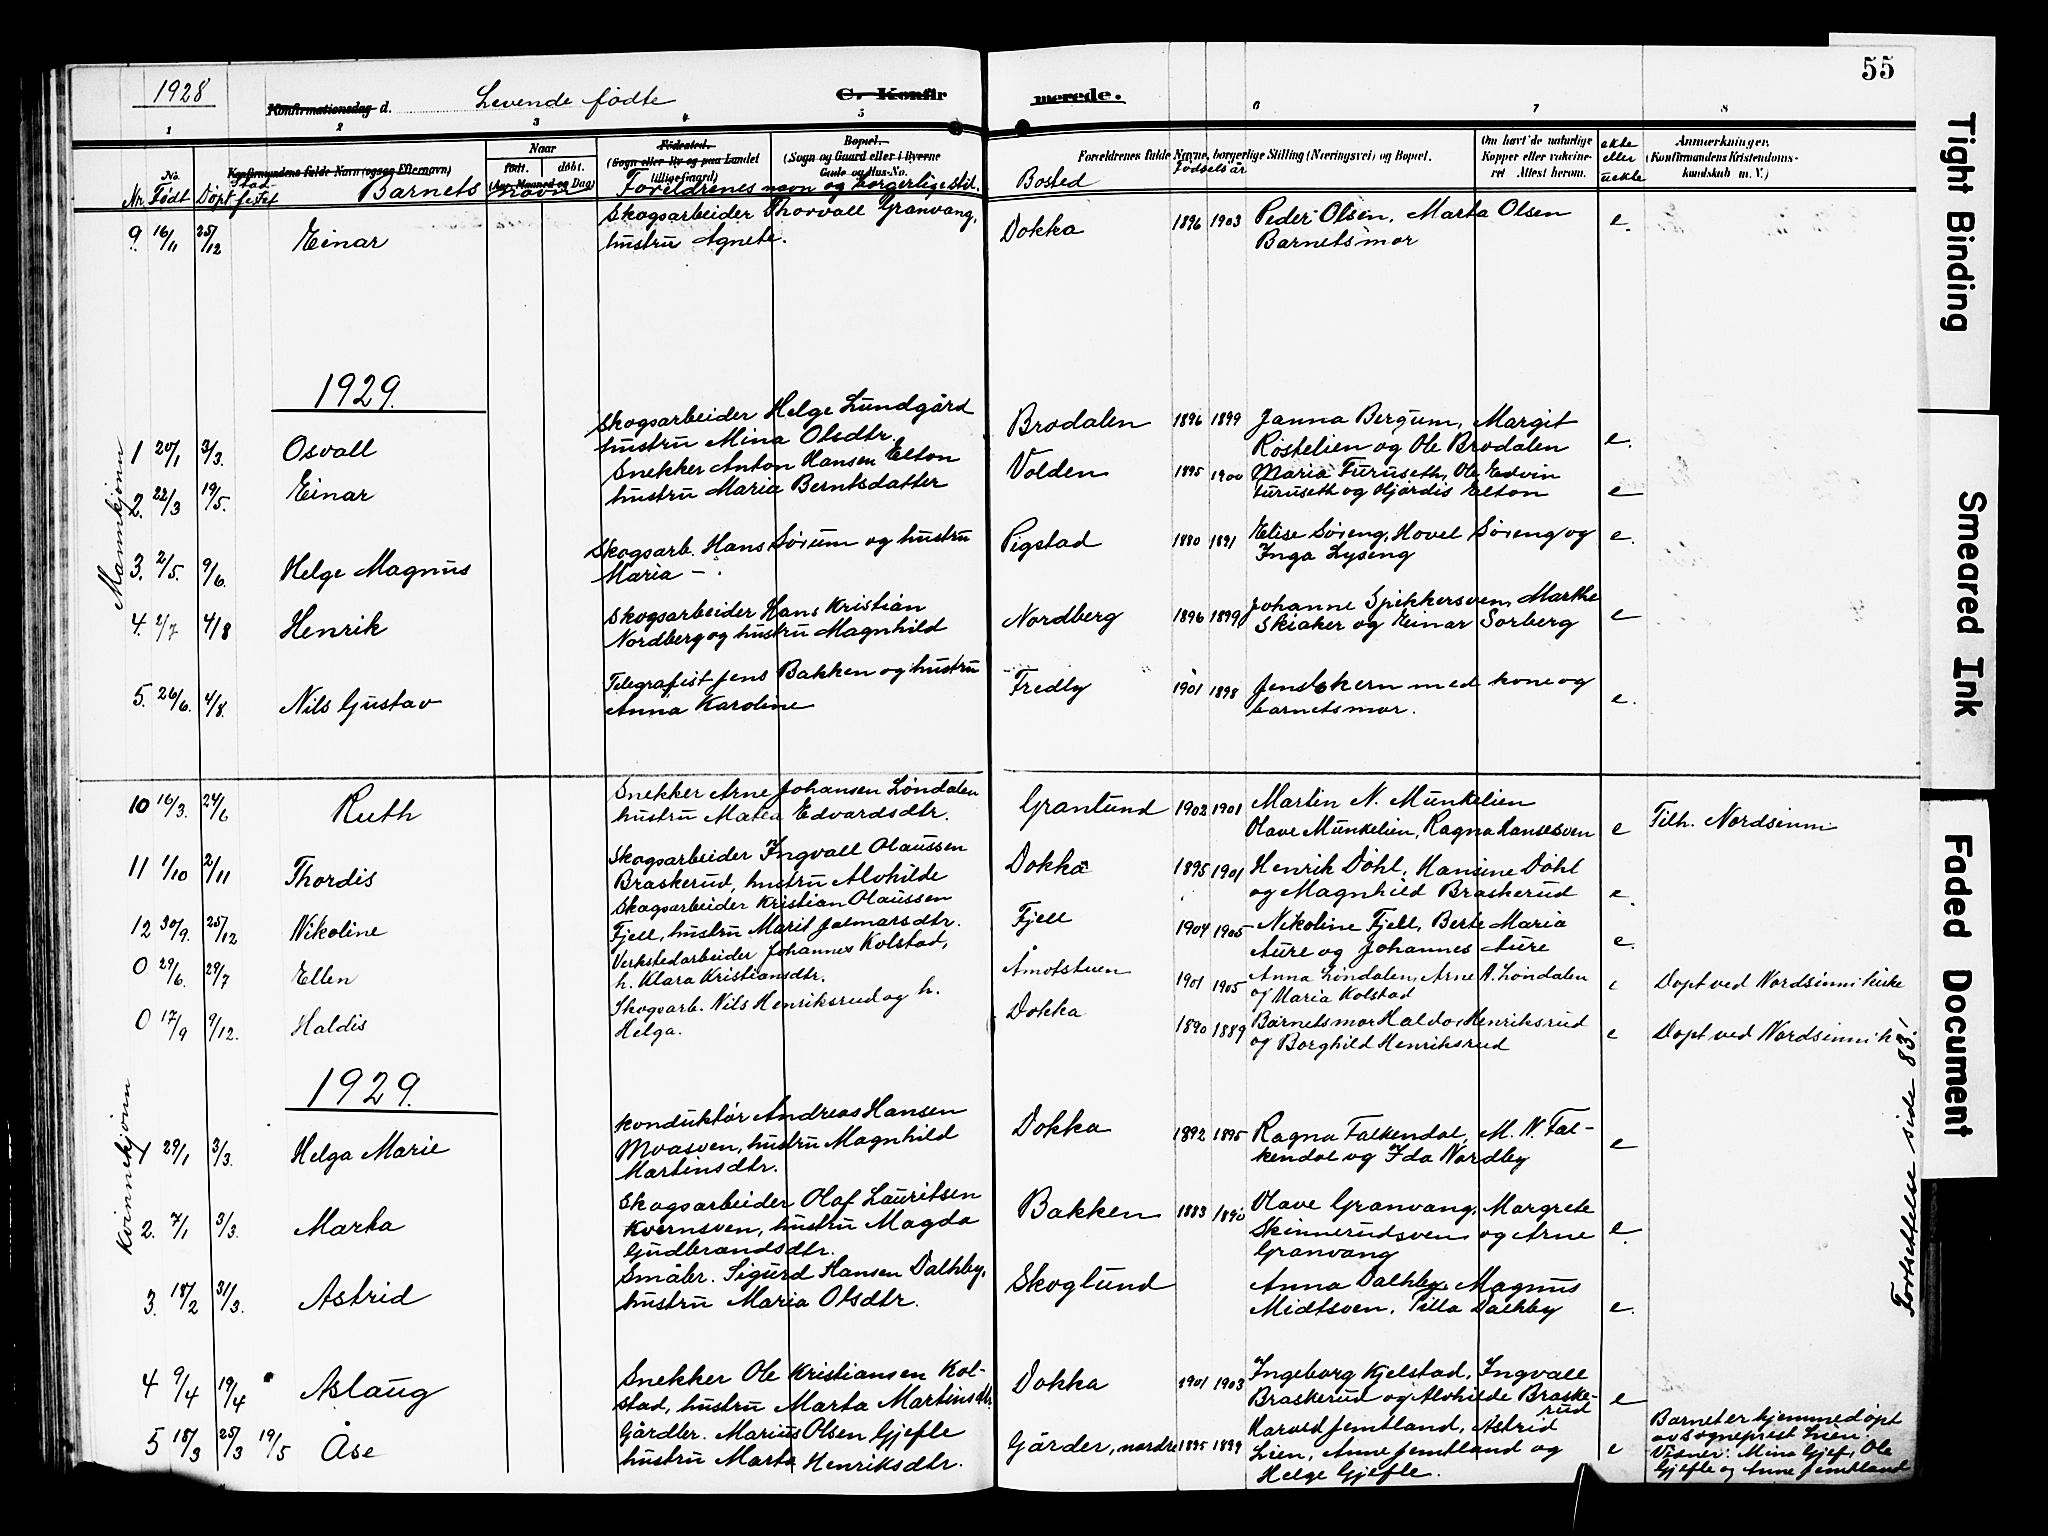 55
1928
Konfirmationsdag d. Levende fødte C. Konfir merede.
1 2 3 4 5 6 7 8
Konfirmandens fulde Navn (ogsaa Efternavn)
Naar
født. døbt.
(Aar, Maaned og Dag)
Fødested.
(Sogn eller By og paa Landet tillige Gaard)
Bopæl.
(Sogn og Gaard eller i Byerne Gade og Hus-No.
Forældrenes fulde Navne, borgerlige Stilling (Næringsvei) og Bopæl.
Om havt de naturlige Kopper eller vakcineret. Attest herom.
ekte eller uekte
Anmærkninger.
(Konfirmandens Kristendomskundskab m. V.)
Nr. Født Døpt Stadfestet Barnets navn Foreldrenes navn og borgerlige stil. Bosted Fødselsår
9. 16/11 25/12 Einar Skogsarbeider Thorvall Granvang, Dokka 1896 1903 Peder Olsen, Marta Olsen e.
hustru Agnete. Barnets mor
1929.
Mannkjønn
1 20/1 3/3. Osvall Skogsarbeider Helge Lundgård Brodalen 1896 1899 Janna Bergum, Margit e.
hustru Mina Olsdtr. Røstelien og Ole Brodalen
2. 22/3 19/5. Einar Snekker Anton Hansen Elton Volden 1895 1900 Maria Furuseth, Ole Edvin e
hustru Maria Berntsdatter Furuseth og Hjørdis Elton
3. 2/5. 9/6. Helge Magnus Skogsarb. Hans Sørum og hustru Pigstad 1880 1891 Elise Søreng, Hovel Søreng og e.
Maria – . Inga Lyseng
4. 2/7 4/8 Henrik Skogsarbeider Hans Kristian Nordberg 1896 1899 Johanne Spikkersven, Marthe e
Nordberg og hustru Magnhild Skiaker og Einar Sorberg
5. 26/6. 4/8. Nils Gustav Telegrafist Jens Bakken og hustru Fredly 1901 1898 Jens Økern med kone og e.
Anna Karoline barnets mor.
10 16/3. 24/6 Ruth Snekker Arne Johansen Løndalen Granlund 1902 1901 Martin N. Munkelien e Tilh. Nordsinni
hustru Matea Edvardsdtr. Olave Munkelien, Ragna Hansesven
11 1/10 2/11 Thordis Skogsarbeider Ingvall Olaussen Dokka 1895 1901 Henrik Døhl, Hansine Døhl e.
Braskerud, hustru Alvhilde og Magnhild Braskerud
12 30/9. 25/12 Nikoline Skogsarbeider Kristian Olaussen Fjell 1904 1905 Nikoline Fjell, Berte Maria e.
Fjell, hustru Marit Jalmarsdtr. Aure og Johannes Aure
0 29/6. 29/7 Ellen Verkstedarbeider Johannes Kolstad, Åmotstuen 1901 1905 Anna Løndalen, Arne A. Løndalen e Døpt ved Nordsinni kirke
h. Klara Kristiansdtr. og Maria Kolstad
0 17/9 9/12. Haldis Skogsarb. Nils Henriksrud og h. Dokka 1890 1889 Barnets mor Haldor Henriksrud e Døpt ved Nordsinni k
Helga. og Borghild Henriksrud
1929.
Kvinnekjønn
1 29/1 3/3. Helga Marie Konduktør Andreas Hansen Dokka 1892 1895 Ragna Falkendal, M. N. Fal- e
Moasven, hustru Magnhild kendal og Ida Nordby
Martinsdtr.
2. 7/1 3/3. Marta Skogsarbeider Olaf Lauritsen Bakken 1883 1890 Olave Granvang, Margrete e.
Kvernsven, hustru Magda Skinnerudsven og Arne
Gudbrandsdtr. Granvang
3. 18/2 31/3. Astrid Småbr. Sigurd Hansen Dalhby, Skoglund Anna Dalhby, Magnus e.
hustru Maria Olsdtr. Midtsven, Tilla Dalhby
4 9/4 19/4 Aslaug Snekker Ole Kristiansen Kol- Dokka 1901 1903 Ingeborg Kjelstad, Ingvall e
stad, hustru Marta Martinsdtr. Braskerud og Alvhilde Braske-
rud
5 18/3 25/3 19/5 Åse Gårdbr. Marius Olsen Gjefle Gårder, nordre 1895 1899 Harald Jemtland, Astrid e Barnet er hjemmedøpt
hustru Marta Henriksdtr. Lien, Anne Jemtland og av sogneprest Lien.
Helge Gjefle. Vidner: Mina Gjef, Ole
Gjefle og Anne Jemtland
Fortsettelse side 83!
Tight Binding
Smeared Ink
Faded Document